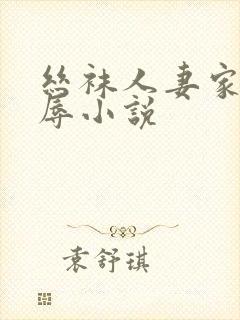 丝袜人妻家
辱小说
袁舒琪